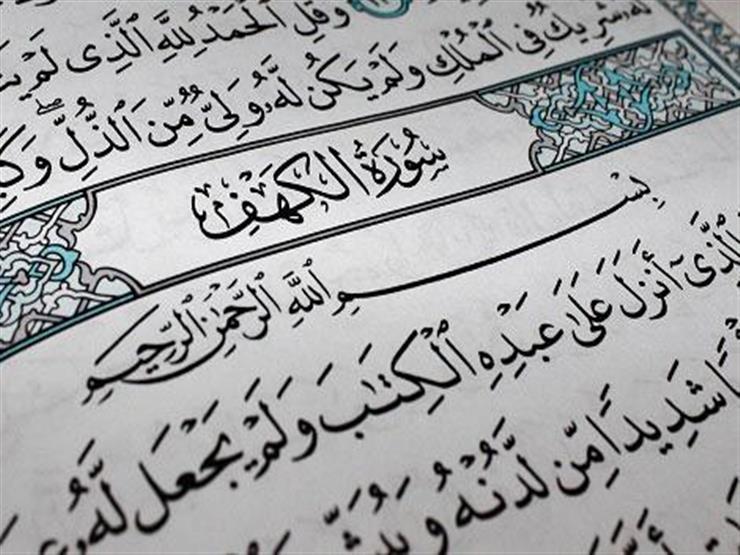 وَقُلِ ٱلْحَمْدُ لِلَّهِ ٱلَّذِى لَمْ
شَرِيكٌ فِى ٱلْمُلْكِ وَلَمْ يَكُن لَّهُۥ وَلِىٌّ مِّنَ ٱلذُّلِّ ۖ
سُورَةُ الكَهْفِ
بِسْمِ اللَّهِ الرَّحْمَٰنِ الرَّحِيمِ
ٱلَّذِىٓ أَنزَلَ عَلَىٰ عَبْدِهِ ٱلْكِتَٰبَ وَلَمْ يَجْعَل لَّهُۥ
شَدِيدًا مِّن لَّدُنْهُ